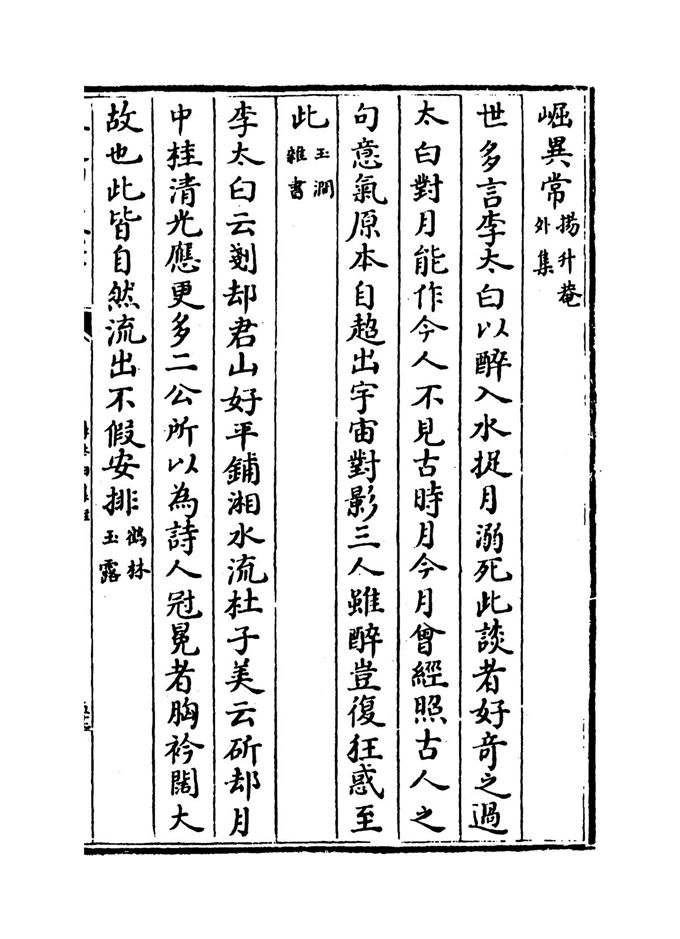 崛異常楊升菴外集
世多言李太白以醉入水捉月溺死此談者好奇之過
太白對月能作今人不見古時月今月曾經照古人之
句意氣原本自超出宇宙對影三人雖醉豈復狂惑至
此玉澗雜書
李太白云剗却君山好平鋪湘水流杜子美云斫却月
中桂清光應更多二公所以為詩人冠冕者胸衿闊大
故也此皆自然流出不假安排鶴林玉露